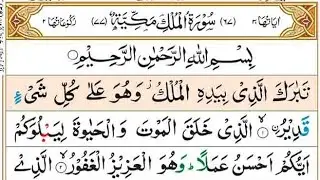 اٰیاتھا ۳۰ (۶۷) سُوْرَةُ الْمُلْكِ مَكِّيَّةٌ (۷۷) رکوعاتھا ۲
بِسْمِ اللّٰهِ الرَّحْمٰنِ الرَّحِيْمِ
تَبٰرَكَ الَّذِيْ بِيَدِهِ الْمُلْكُ ؗ وَهُوَ عَلٰى كُلِّ شَیْءٍ
قَدِيْرُ ۙ﴿۱﴾ ۨالَّذِيْ خَلَقَ الْمَوْتَ وَ الْحَيٰوةَ لِيَبْلُوَكُمْ
اَيُّكُمْ اَحْسَنُ عَمَلًا ؕ وَهُوَ الْعَزِيْزُ الْغَفُوْرُ ۙ﴿۲﴾ الَّذِيْ